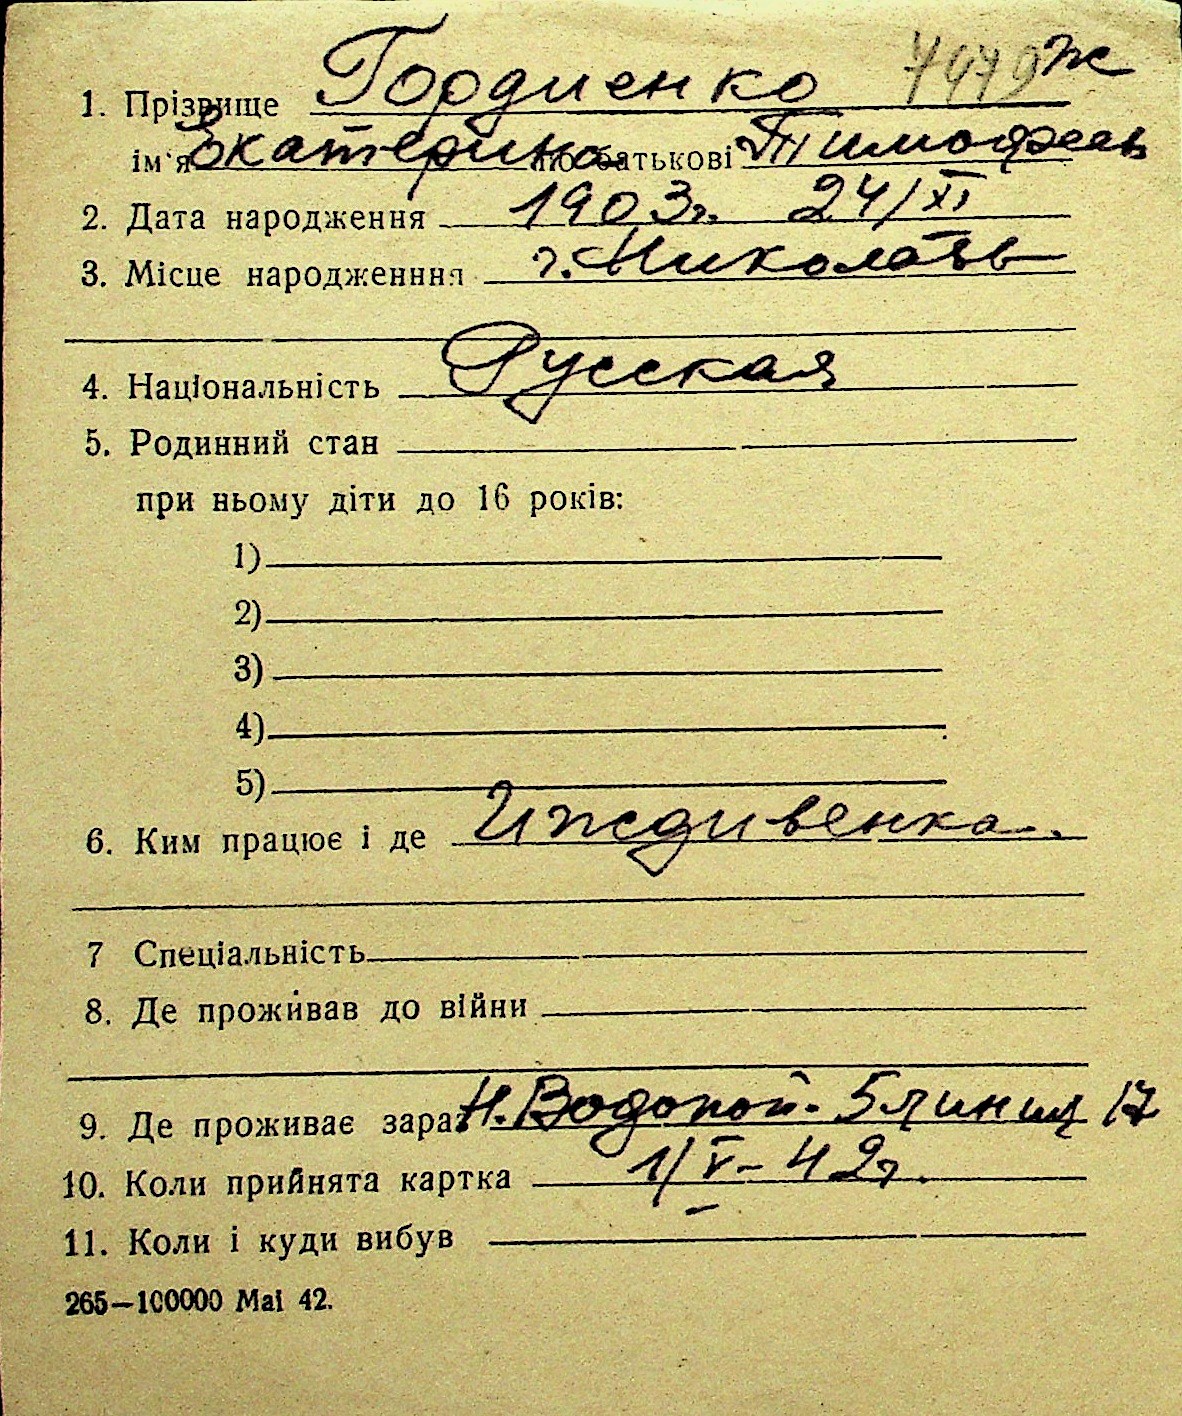 7479 ж
1. Прізвище Гордиенко
ім'я Екатерина по батькові Тимофеев
2. Дата народження 1903г. 24/XI
3. Місце народженння г. Николаев
4. Національність Русская
5. Родинний стан
при ньому діти до 16 років:
1)
2)
3)
4)
5)
6. Ким працює і де Иждивенка.
7 Спеціальність
8. Де проживав до війни
9. Де проживає зараз Н. Водопой. 5 линия 17
10. Коли прийнята картка 1/V-42г.
11. Коли і куди вибув
265—100000 Маі 42.